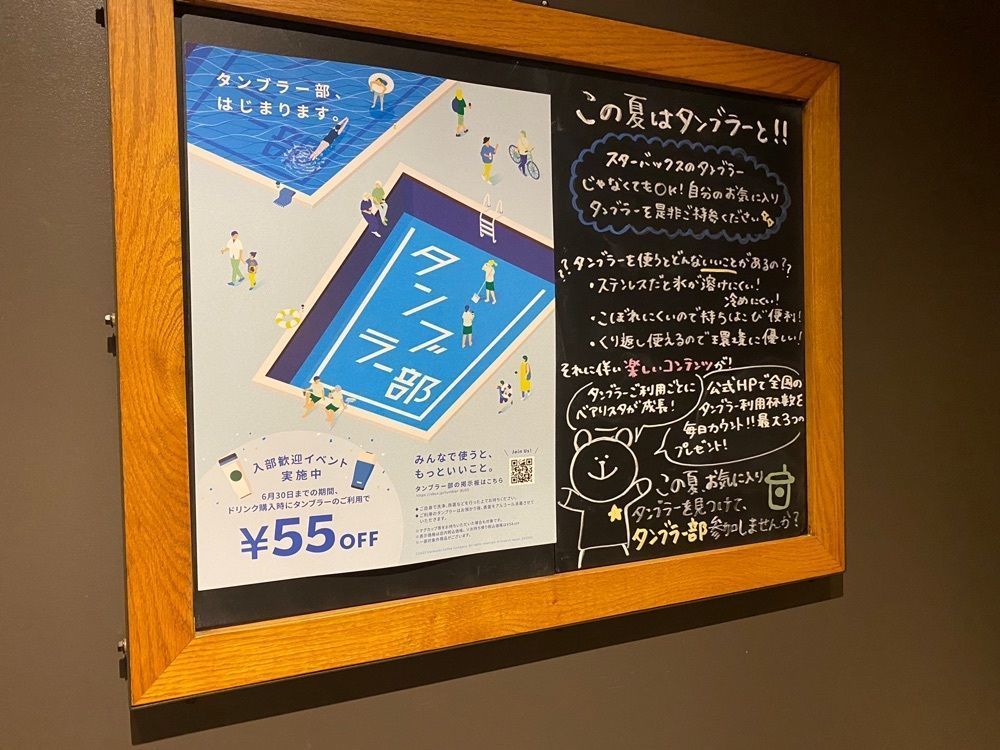 タンブラー部、
はじまります。
タンブラー部
入部歓迎イベント
実施中
6月30日までの期間、
ドリンク購入時にタンブラーのご利用で
¥55 OFF
みんなで使うと、
もっといいこと。
タンブラー部の掲示板はこちら
Join Us!
この夏はタンブラーと!!
スターバックスのタンブラー
じゃなくてもOK!自分のお気に入り
タンブラーを是非ご持参ください
??タンブラーを使うとどんないいことがあるの??
・ステンレスだと氷が溶けにくい!
冷めにくい!
・こぼれにくいので持ちはこび便利!
・くり返し使えるので環境に優しい!
それに伴い楽しいコンテンツが!
タンブラーご利用ごとに
ベアリスタが成長!
公式HPで全国の
タンブラー利用杯数を
毎日カウント!!最大3つの
プレゼント!
この夏お気に入り
タンブラーを見つけて、
タンブラー部参加しませんか?